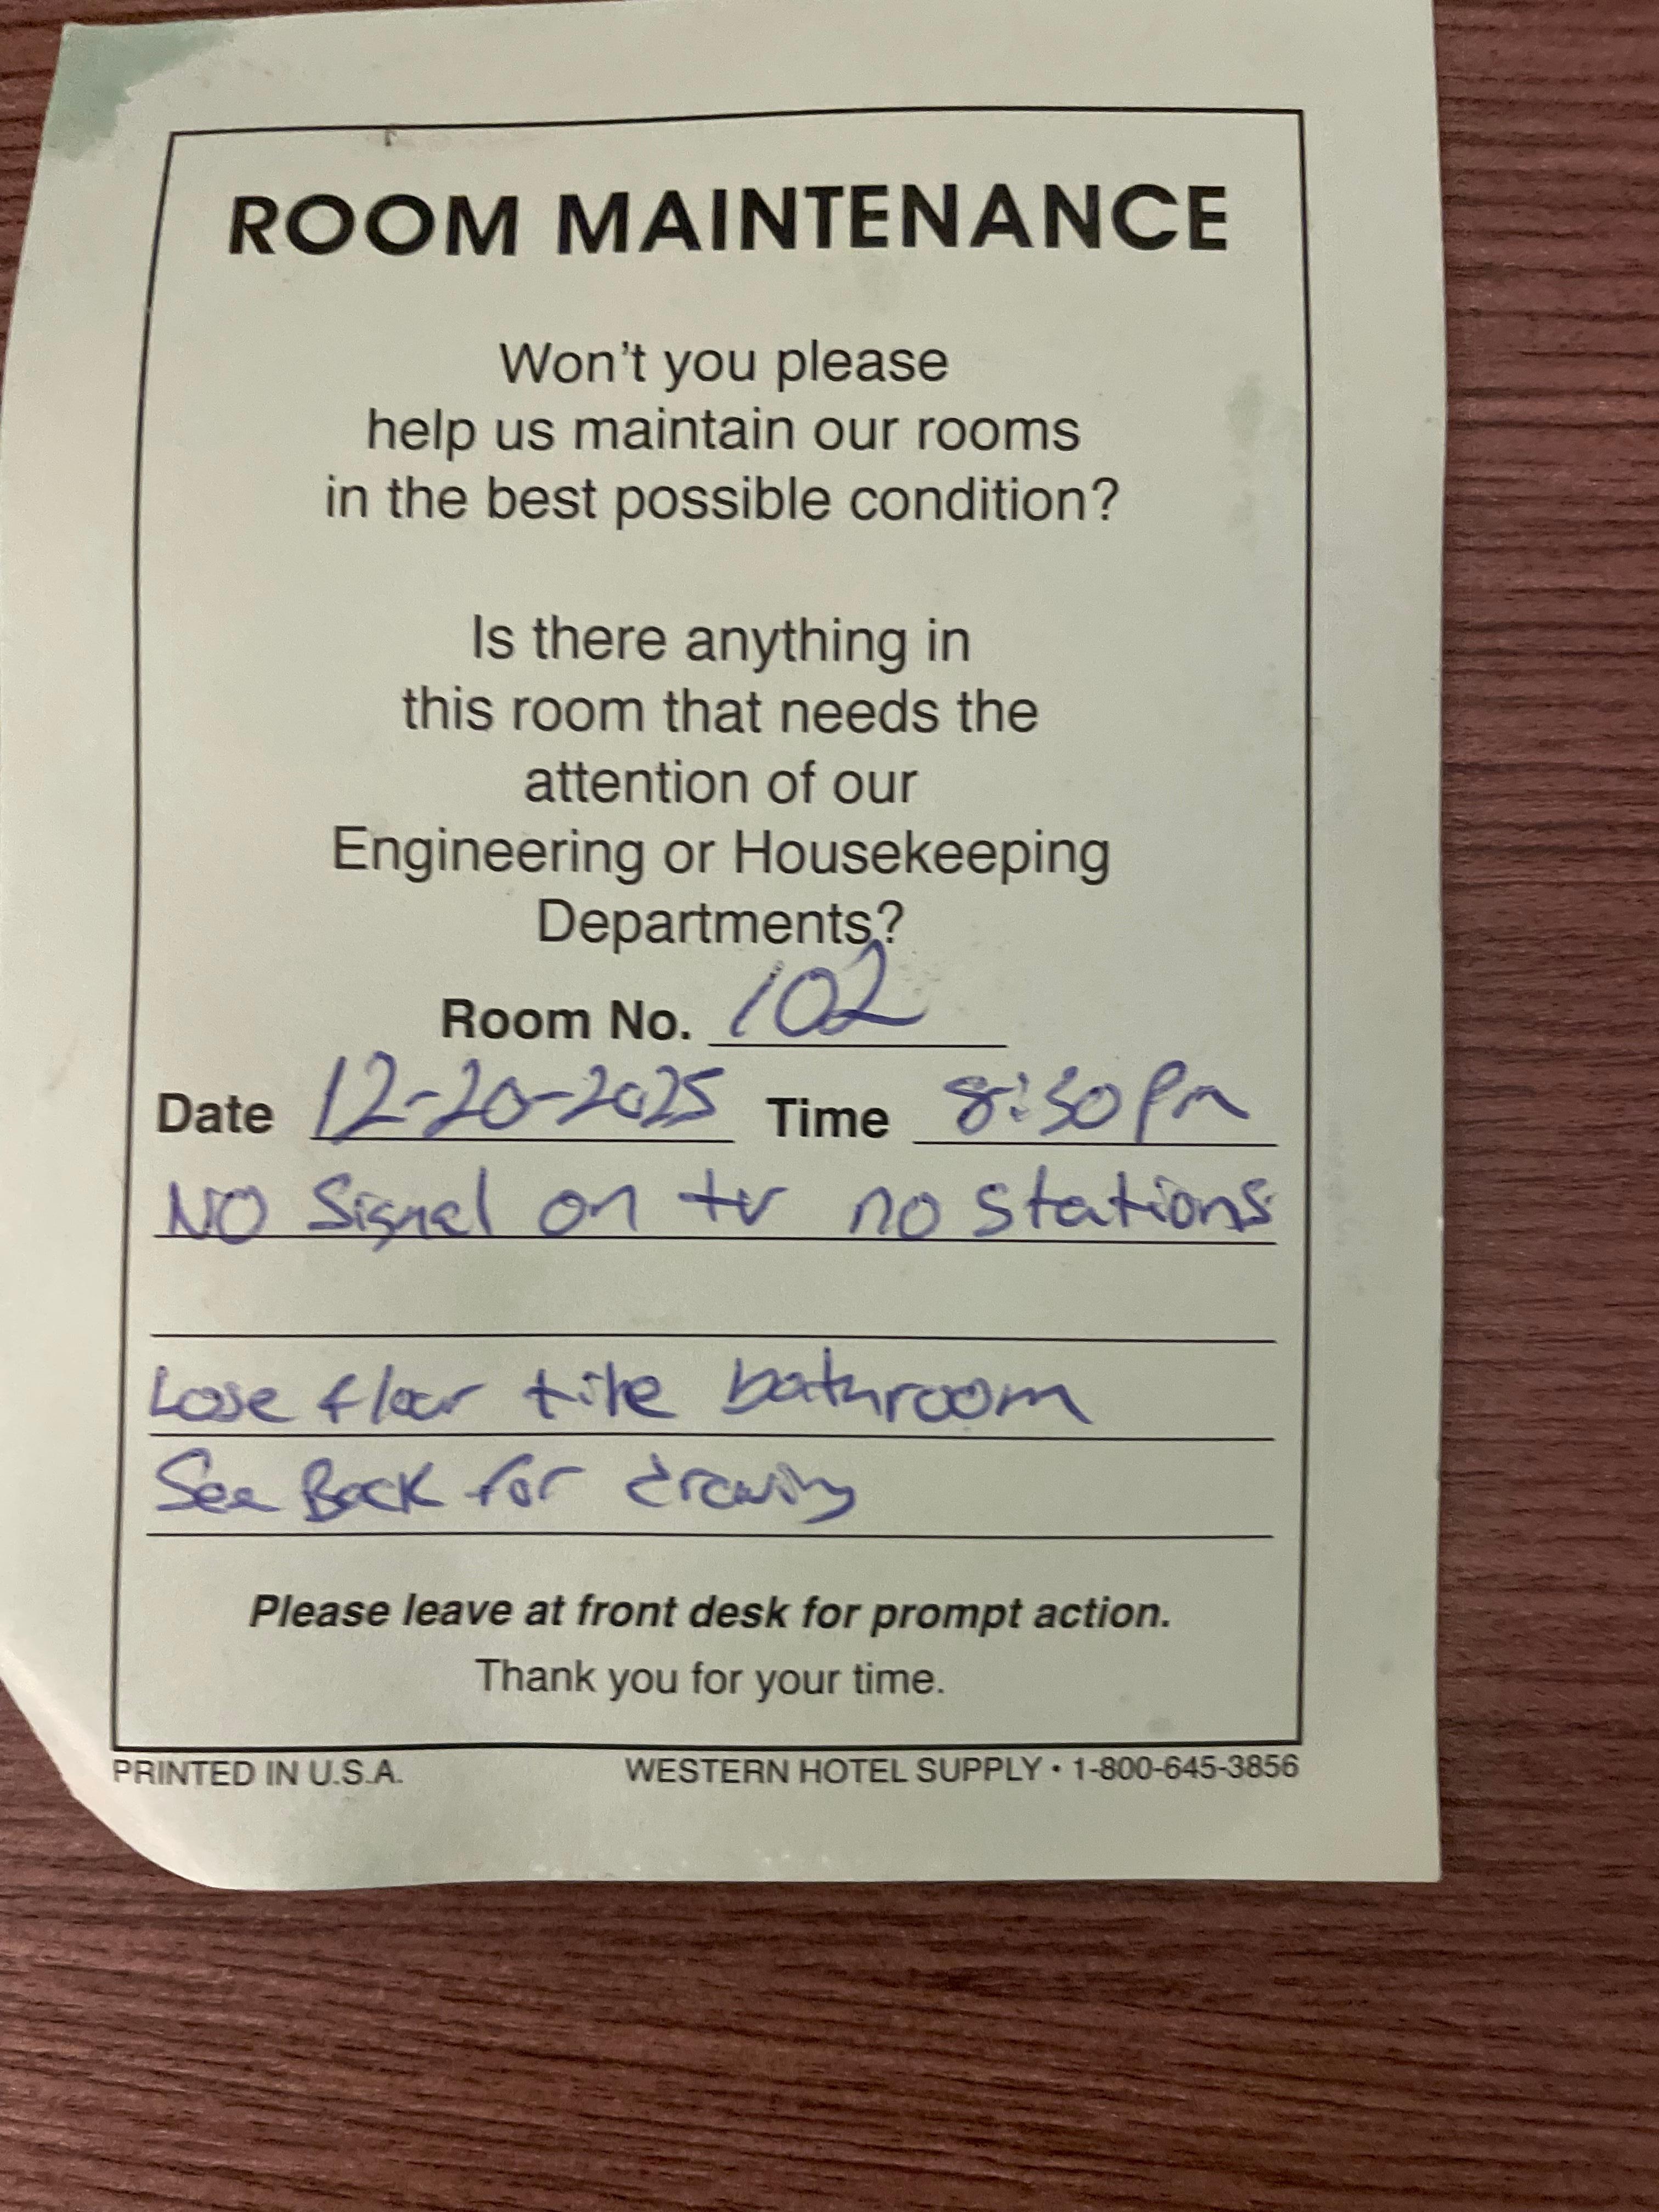 ROOM MAINTENANCE
Won't you please
help us maintain our rooms
in the best possible condition?
Is there anything in
this room that needs the
attention of our
Engineering or Housekeeping
Departments?
Room No. 102
Date 12-20-2025 Time 8:30 Pm
NO Signal on tv no stations
Lose floor tile bathroom
See Back for drawing
Please leave at front desk for prompt action.
Thank you for your time.
PRINTED IN U.S.A. WESTERN HOTEL SUPPLY • 1-800-645-3856